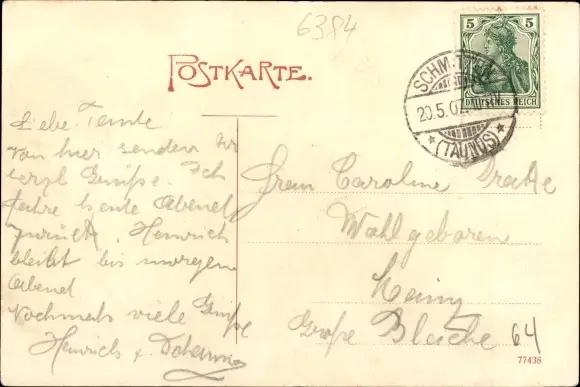 6384
POSTKARTE.
5 5
DEUTSCHES REICH
SCHMITTEN
20.5.07
*(TAUNUS)*
Liebe Tante
Von hier senden wir
herzl Grüße. Ich
fahre heute Abend
zurück. Heinrich
bleibt bis morgen
Abend
Nochmals viele Grüße
Heinrich &
Frau Caroline
Wohlgeboren
Mainz
Große Bleiche 64
77438